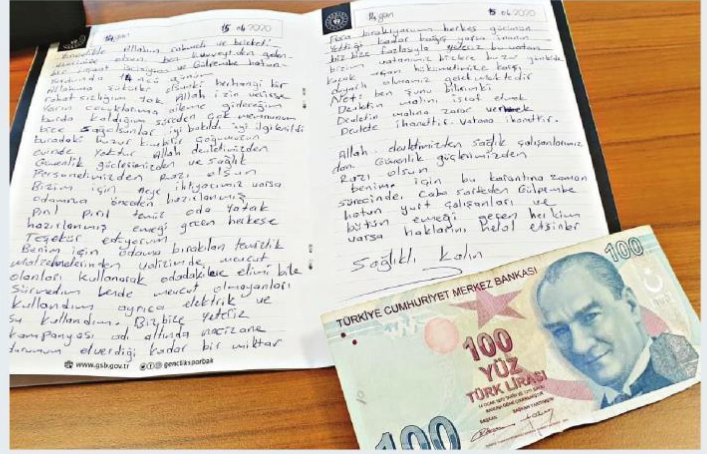 14. gün 15.06.2020
Öncelikle Allahın rahmeti ve bereketi
üzerinize olsun. ben Kuveyt'den gelen
bir inşaat işçisiyim ve Gülpembe hatun
yurdunda 14 ncü günüm
Allahıma şükürler olsunki herhangi bir
rahatsızlığım yok Allah izin verirse
Yarın çocuklarıma aileme gideceğim
burda kaldığım süreden çok memnunum
bize Sağolsunlar iyi bakıldı iyi ilgilenildi
buradaki huzur bunlar çoğumuzun
evinde yoktur Allah devletimizden
Güvenlik güçlerimizden ve sağlık
Personelimizden Razı olsun
Bizim için neye ihtiyacımız varsa
odamıza önceden hazırlanmış
Pırıl pırıl temiz oda yatak
hazırlanmış emeği geçen herkese
Teşekür ediyorum
Benim için odama bırakılan temizlik
malzemelerinden valizimde mevcut
olanları kullanarak odadakilere elimi bile
Sürmedim bende mevcut olmayanları
kullandım ayrıca elektrik ve
Su kullandım. Biz bize yeteriz
kampanyası adı altında naçizane
durumum elverdiği kadar bir miktar
www.gsb.gov.tr gencliksporbak
14. gün 15.06.2020
Para bırakıyorum herkes gücünün
Yettiği kadar bağış yarsa inanın
biz bize fazlasıyla yeteriz bu vatan
bizim vatanımız bizlere huzur
kucak açan hükümetimize karşı
duyarlı olmamız gerekmektedir
Not: ben şunu bilirimki
Devletin malını israf etmek
Devletin malına zarar vermek
Devlete ihanettir. Vatana ihanettir.
Allah devletimizden sağlık çalışanlarımız
dan Güvenlik güçlerimizden
Razı olsun
benim için bu karantina zaman
sürecinde, Çaba sarfeden Gülpembe
hatun yurt çalışanları ve
bütün emeği geçen her kim
varsa haklarını helal etsinler
Sağlıklı kalın
TÜRKİYE CUMHURİYET MERKEZ BANKASI
100
100
YÜZ
TÜRK LİRASI
100